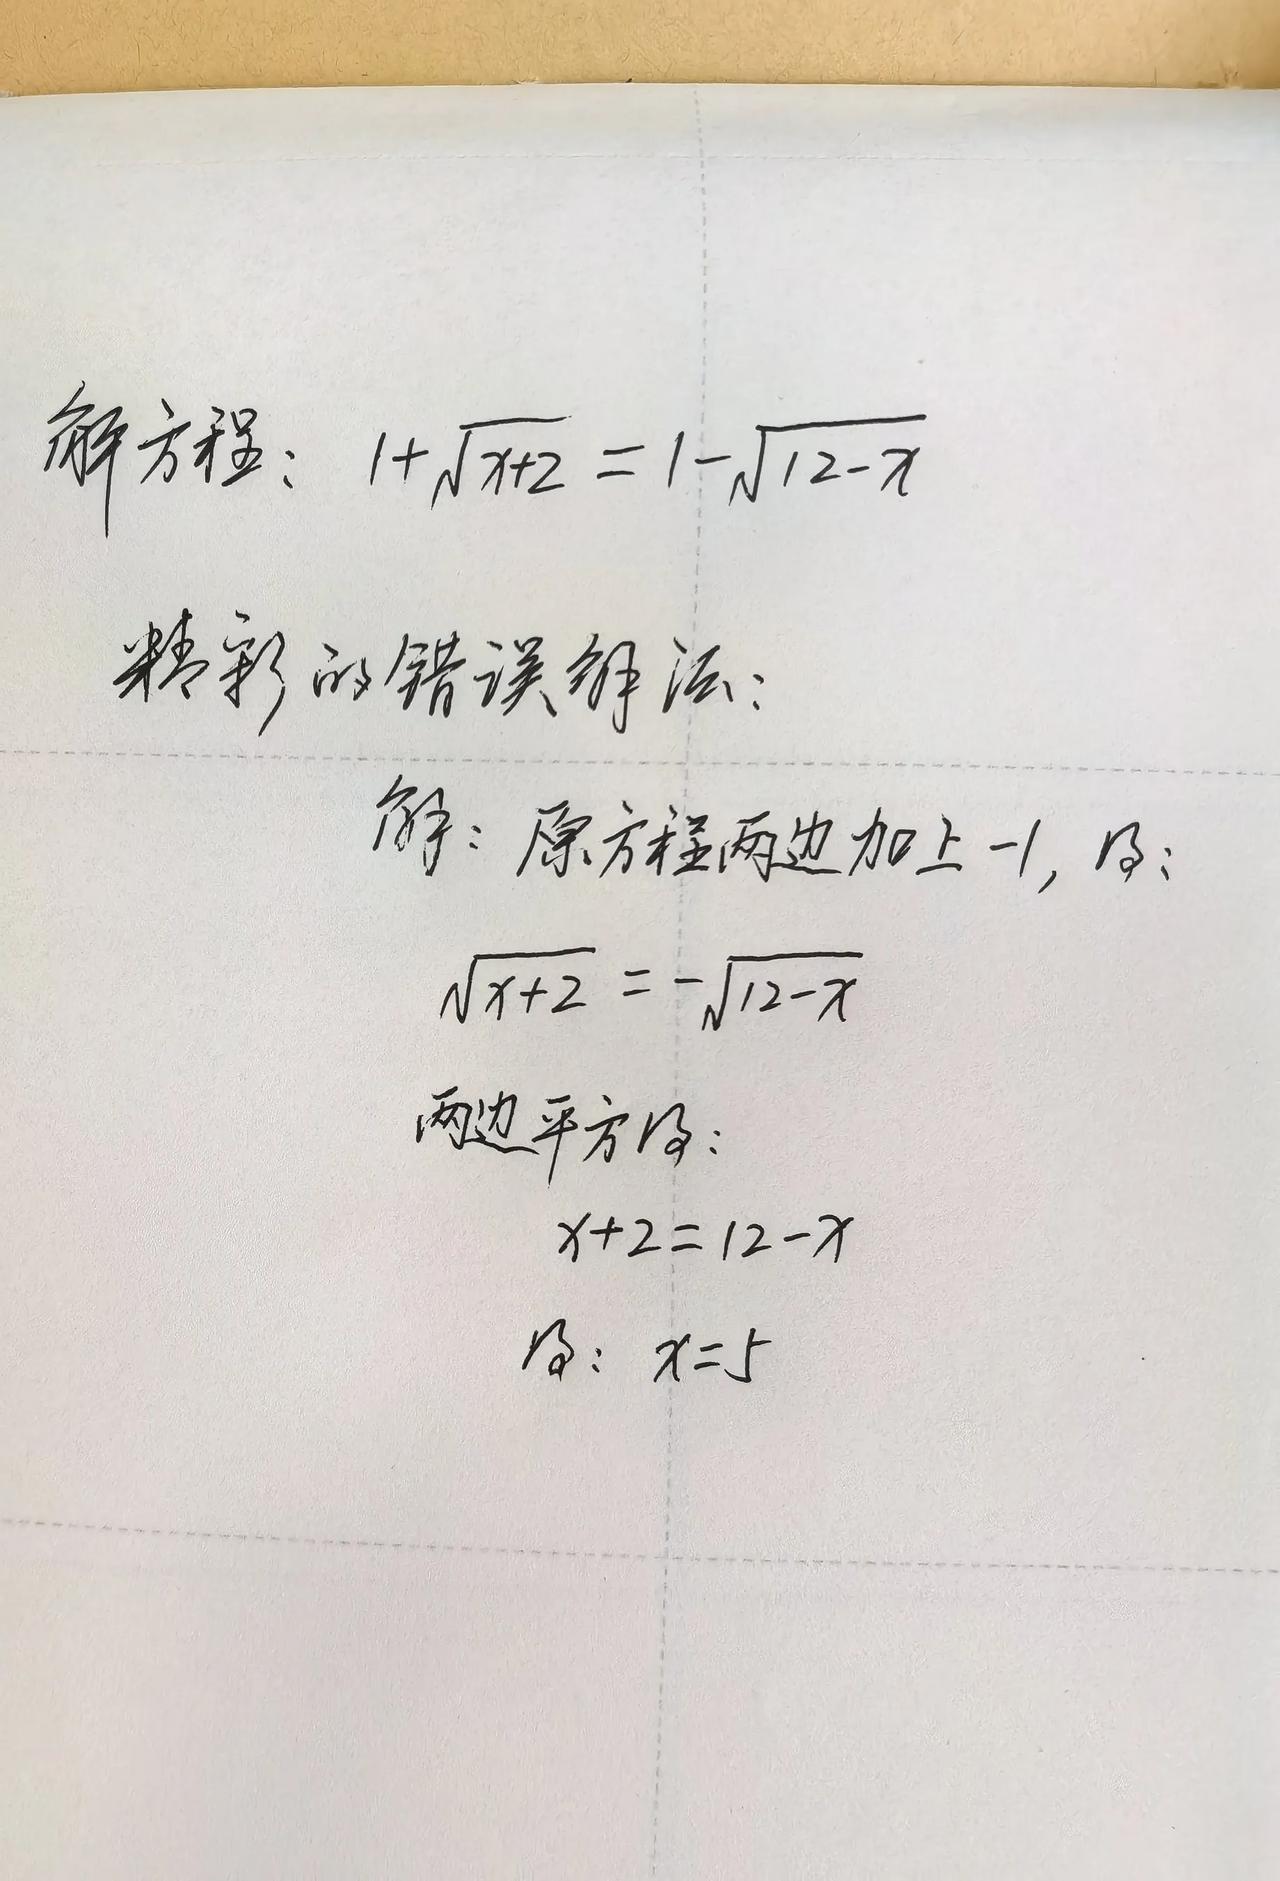 解方程: 1+√(x+2) = 1-√(12-x)
精彩的错误解法:
解: 原方程两边加上-1, 得:
√(x+2) = -√(12-x)
两边平方得:
x+2=12-x
得: x=5